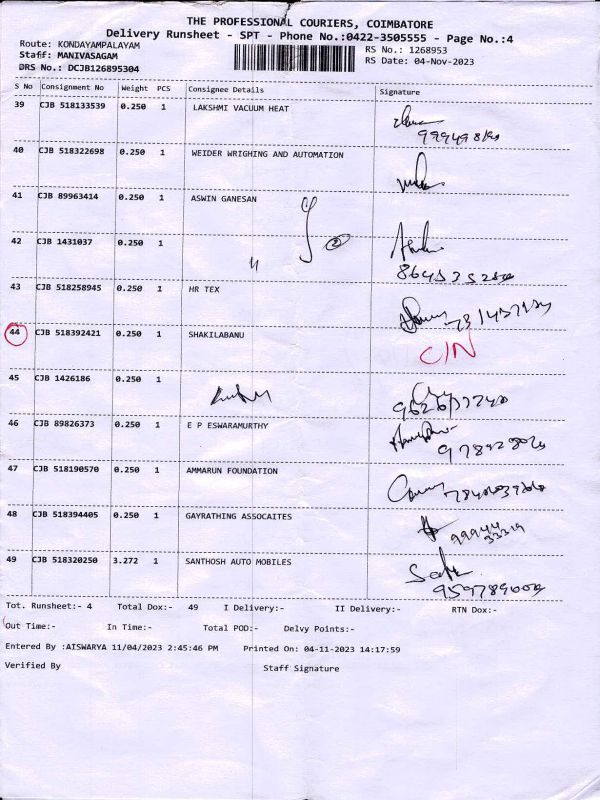 THE PROFESSIONAL COURIERS, COIMBATORE
Delivery Runsheet - SPT - Phone No.:0422-3505555 - Page No.:4
Route: KONDAYAMPALAYAM
RS No.: 1268953
Staff: MANIVASAGAM
RS Date: 04-Nov-2023
DRS No.: DCJB126895304
S No Consignment No Weight PCS Consignee Details Signature
39 CJB 518133539 0.250 1 LAKSHMI VACUUM HEAT
40 CJB 518322698 0.250 1 WEIDER WRIGHING AND AUTOMATION
41 CJB 89963414 0.250 1 ASWIN GANESAN
42 CJB 1431037 0.250 1
43 CJB 518258945 0.250 1 HR TEX
44 CJB 518392421 0.250 1 SHAKILABANU C/N
45 CJB 1426186 0.250 1
46 CJB 89826373 0.250 1 E P ESWARAMURTHY
47 CJB 518190570 0.250 1 AMMARUN FOUNDATION
48 CJB 518394405 0.250 1 GAYRATHING ASSOCAITES
49 CJB 518320250 3.272 1 SANTHOSH AUTO MOBILES
Tot. Runsheet:- 4 Total Dox:- 49 I Delivery:- II Delivery:- RTN Dox:-
Out Time:- In Time:- Total POD:- Delvy Points:-
Entered By :AISWARYA 11/04/2023 2:45:46 PM Printed On: 04-11-2023 14:17:59
Verified By Staff Signature